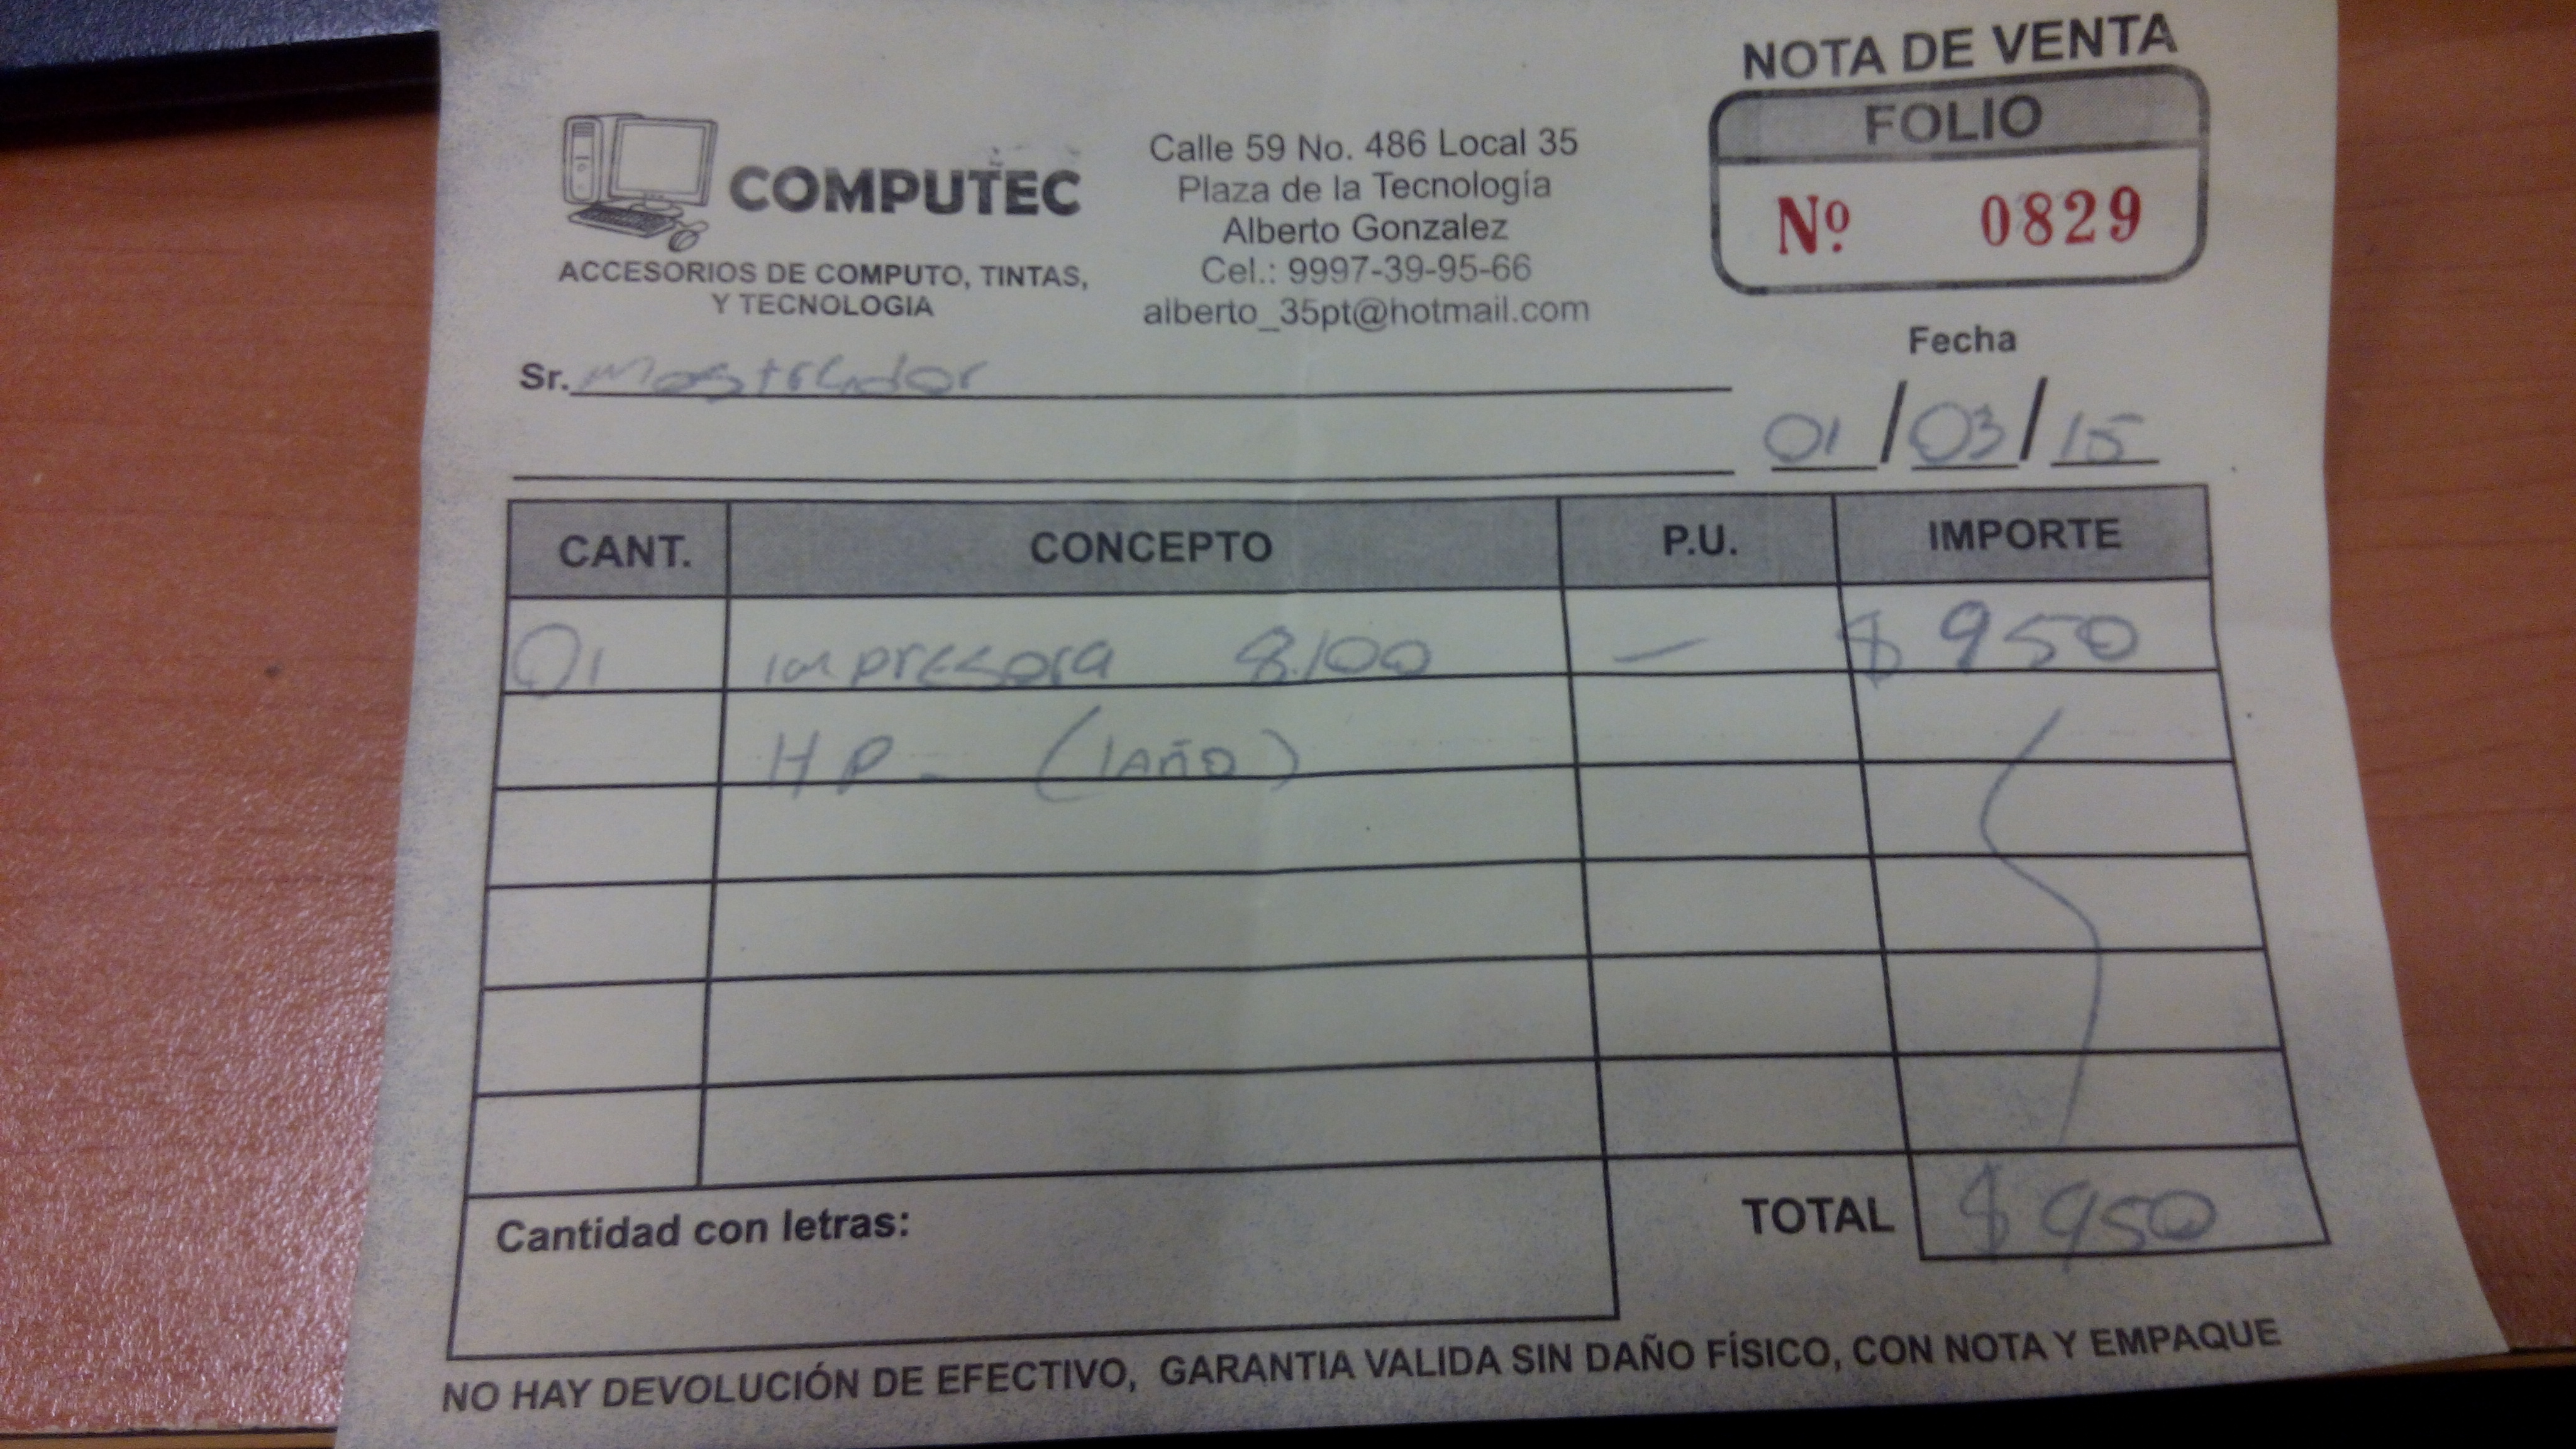 NOTA DE VENTA
FOLIO
Nº 0829
COMPUTEC
ACCESORIOS DE COMPUTO, TINTAS,
Y TECNOLOGIA
Calle 59 No. 486 Local 35
Plaza de la Tecnología
Alberto Gonzalez
Cel.: 9997-39-95-66
alberto_35pt@hotmail.com
Fecha
Sr. Mostrador
01/03/15
CANT. CONCEPTO P.U. IMPORTE
01 impresora 8100 — $950
HP - (1AÑO)
Cantidad con letras:
TOTAL $950
NO HAY DEVOLUCIÓN DE EFECTIVO, GARANTIA VALIDA SIN DAÑO FÍSICO, CON NOTA Y EMPAQUE